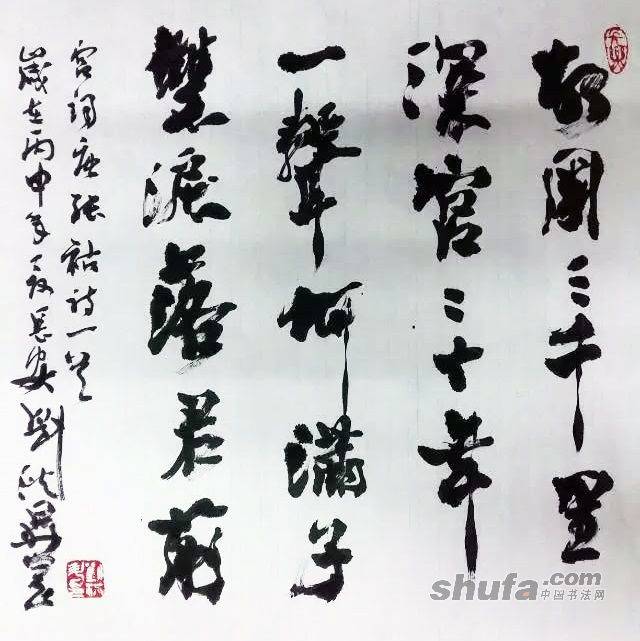 故國三千里
深宫二十年
一聲何滿子
雙淚落君前
宫詞唐張祜詩一首
歲在丙申年夏長安劉
shufa.com
中国书法网